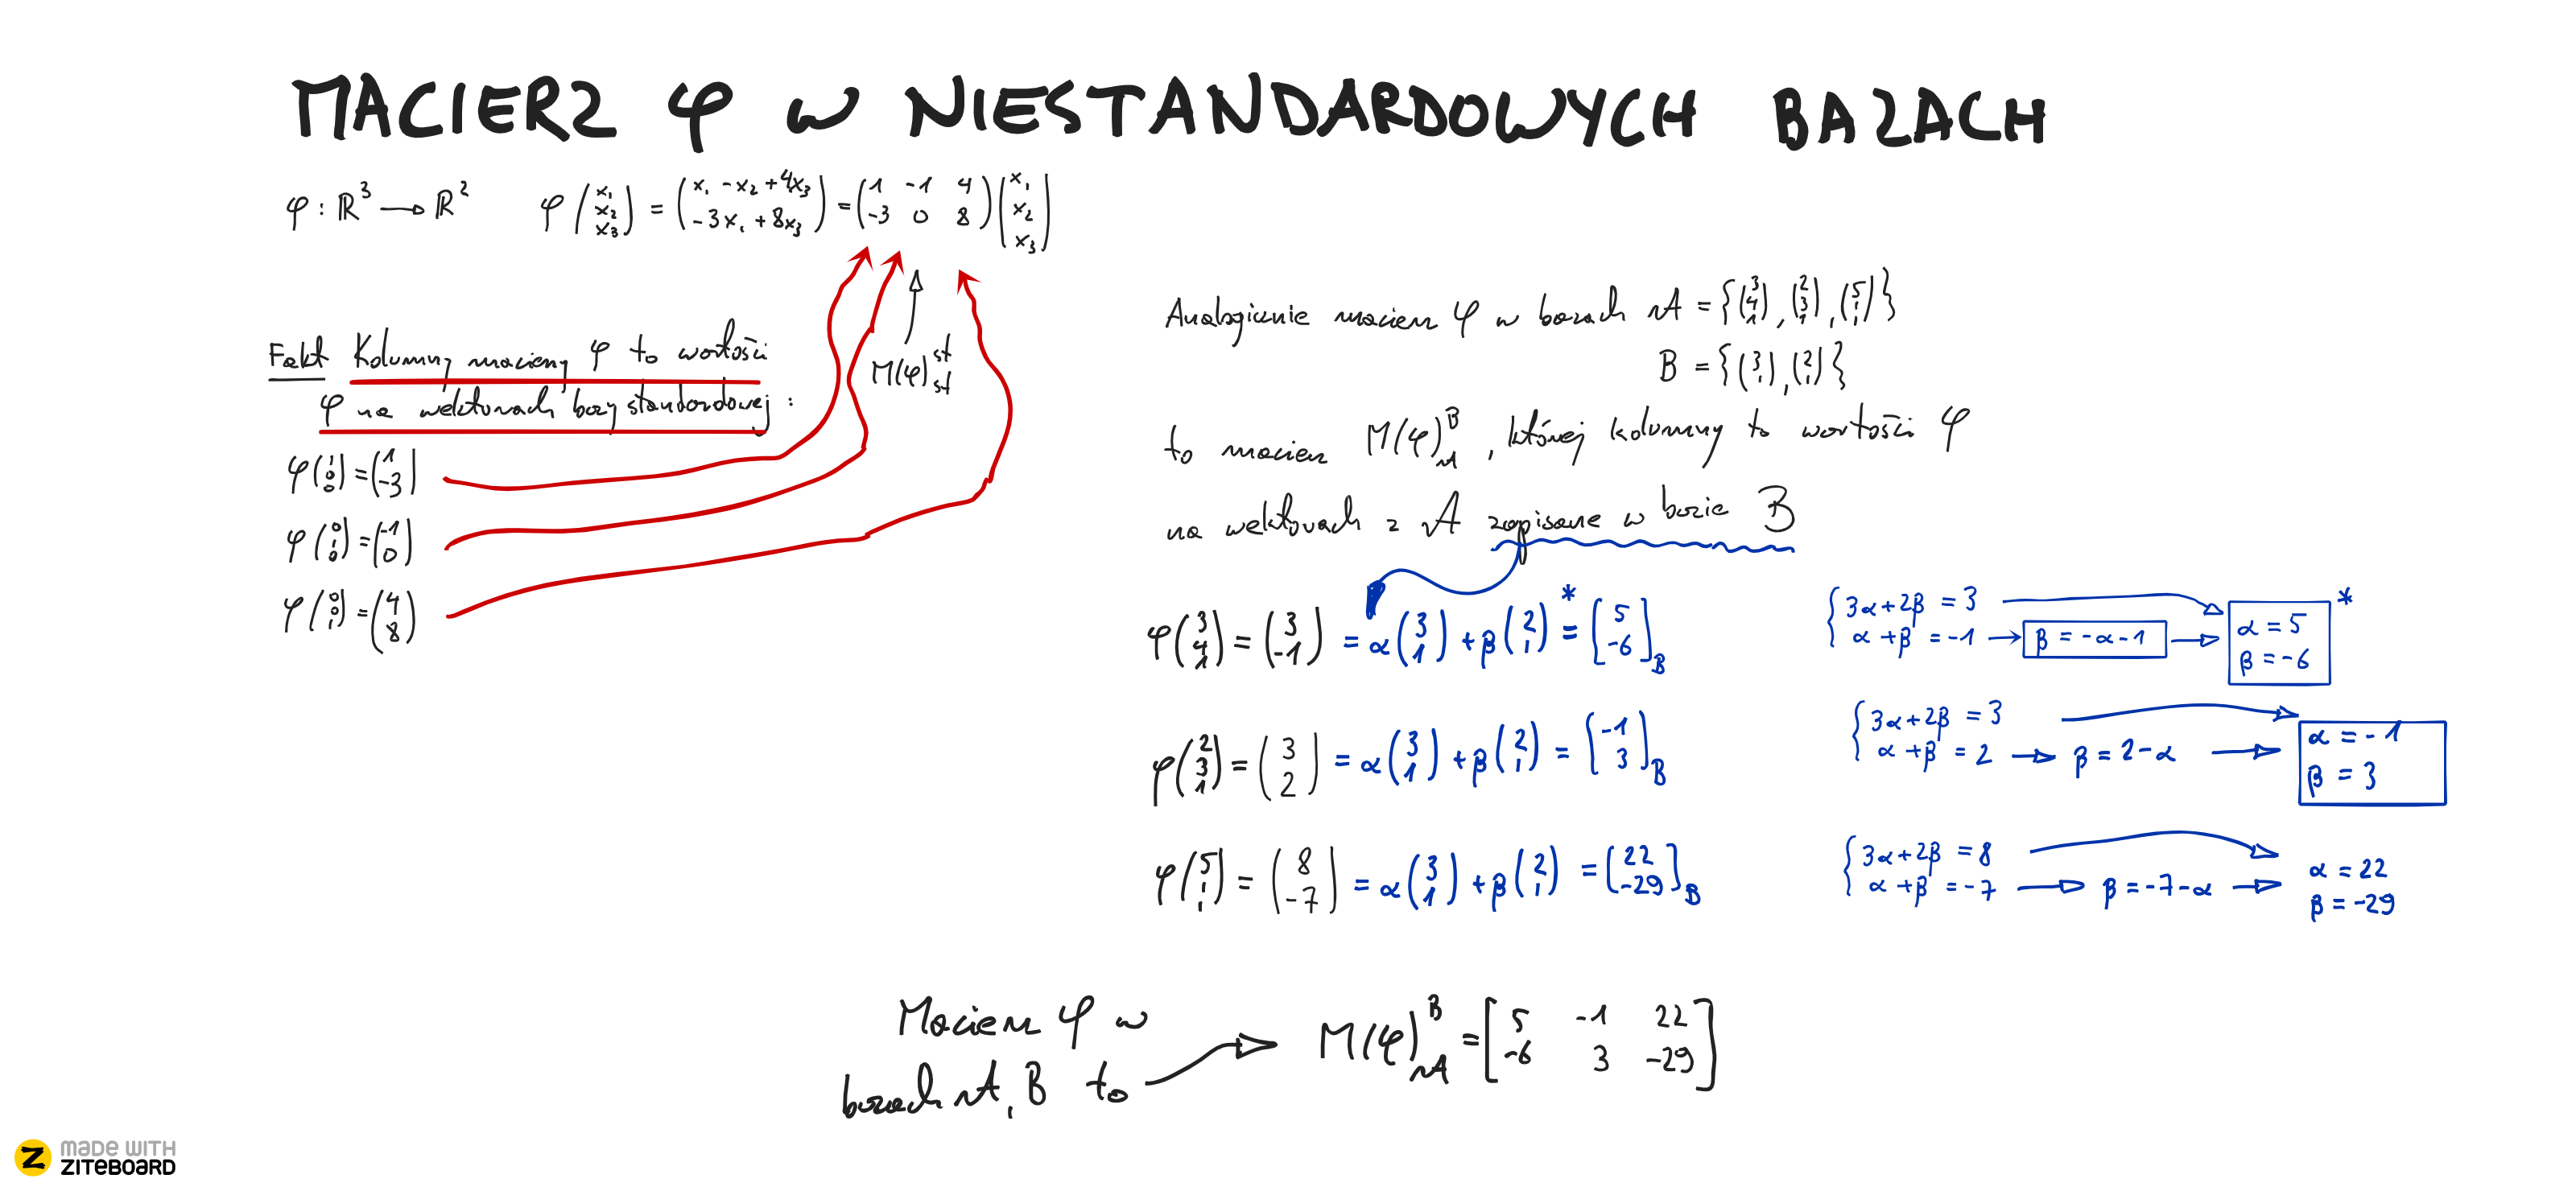 MACIERZ φ w NIESTANDARDOWYCH BAZACH
φ : ℝ³ → ℝ² φ(x₁ x₂ x₃) = (x₁ - x₂ + 4x₃ / -3x₁ + 8x₃) = (1 -1 4 / -3 0 8)(x₁ x₂ x₃)
M(φ)ˢᵗₛₜ
Fakt Kolumny macierzy φ to wartości
φ na wektorach bazy standardowej:
φ(1 0 0) = (1 -3)
φ(0 1 0) = (-1 0)
φ(0 0 1) = (4 8)
Analogicznie macierz φ w bazach A = {(3 4 1), (2 3 1), (5 1 1)}
B = {(3 1), (2 1)}
to macierz M(φ)ᴮ_A, której kolumny to wartości φ
na wektorach z A zapisane w bazie B
φ(3 4 1) = (3 -1) = α(3 1) + β(2 1) =* [5 -6]_B
{3α+2β = 3
α+β = -1 → β = -α-1 → α = 5 β = -6 *
φ(2 3 1) = (3 2) = α(3 1) + β(2 1) = [-1 3]_B
{3α+2β = 3
α+β = 2 → β = 2-α → α = -1 β = 3
φ(5 1 1) = (8 -7) = α(3 1) + β(2 1) = [22 -29]_B
{3α+2β = 8
α+β = -7 → β = -7-α → α = 22 β = -29
Macierz φ w
bazach A, B to → M(φ)ᴮ_A = [5 -1 22 / -6 3 -29]
Z MADE WITH
ZITEBOARD